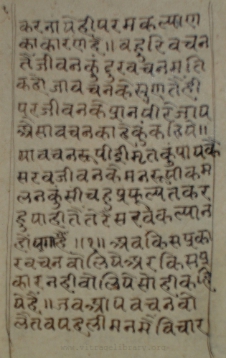 करना येही परम कल्याण
का कारण है॥ बहुरि वचन
तैं जीवनकुं दुरवचन मति
कहो जा वचनके सुणतैंही
पर जीवनके प्रान पीरे जाय
अैसा वचन काहेकुं कहिये॥
या वचनरूपी अमृतकुं पायकै
सर्व जीवनके मनरूपी कम
लनकुं सीचहु प्रफुल्यत कर
हु याही तैं तेरै सरव कल्यान
होयगा है॥१॥ अब किस प्रका
र वचन बोलिये अर किस प्र
कार नही बोलिये सो ही कहि
ये है॥ जब आप वचन बो
लै तब पहली मनमै विचार